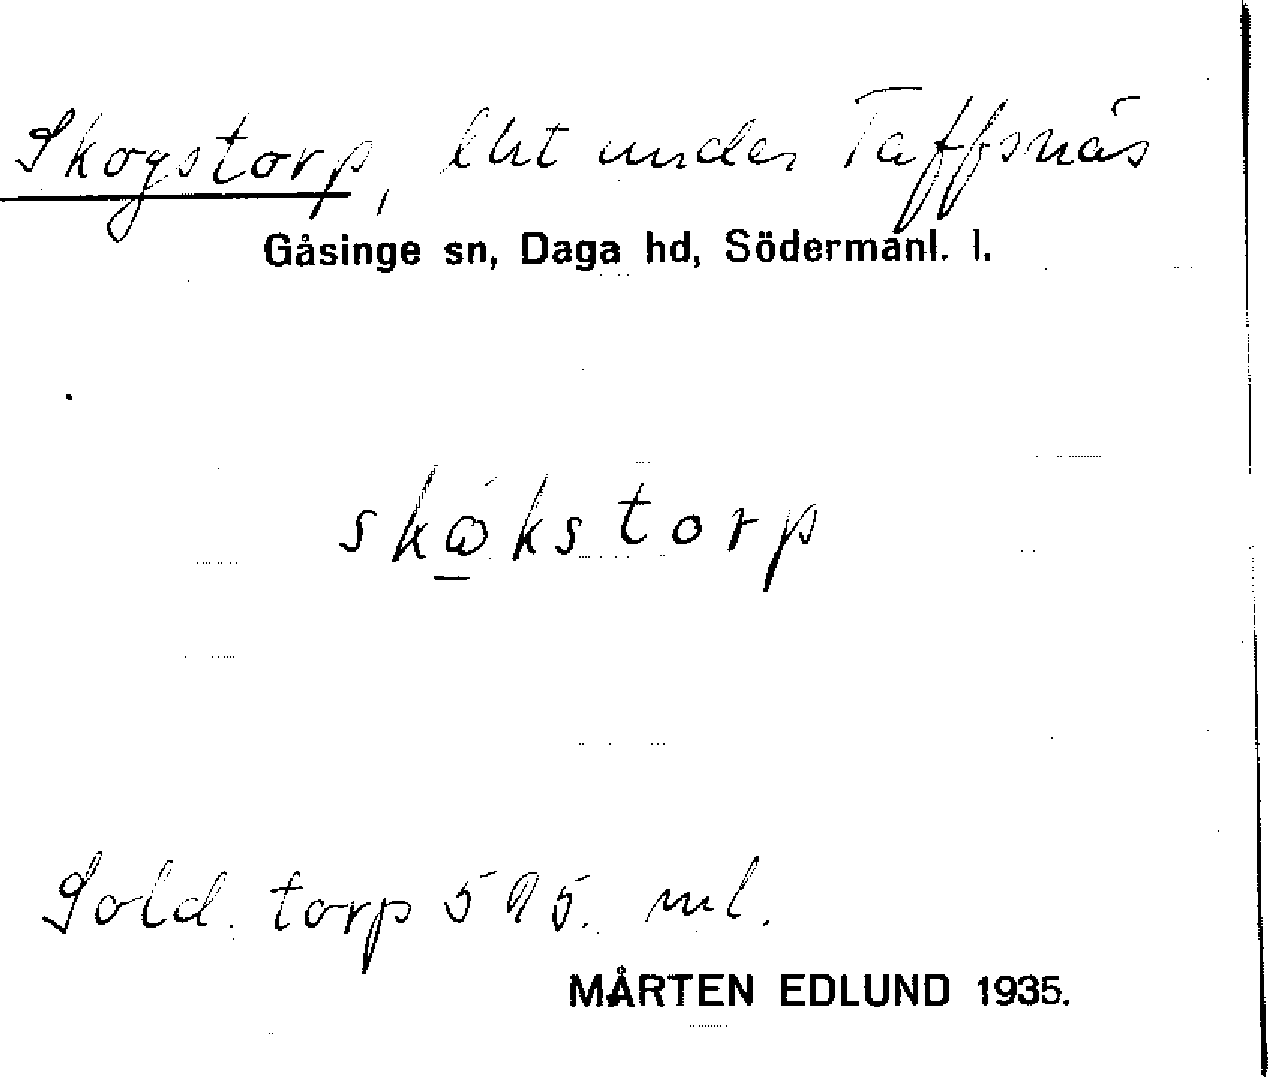 Skogstorp, lht under Taffsnäs
Gåsinge sn, Daga hd, Södermanl. l.
skωkstorp
Sold. torp 595. ml.
MÅRTEN EDLUND 1935.